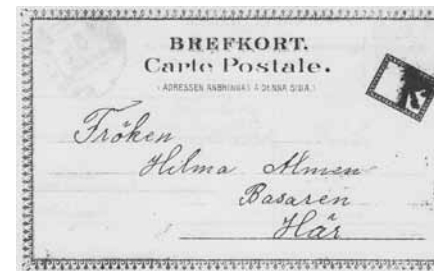 BREFKORT.
Carte Postale.
(ADRESSEN ANBRINGAS Å DENNA SIDA.)
Fröken
Hilma Almen
Basaren
Här